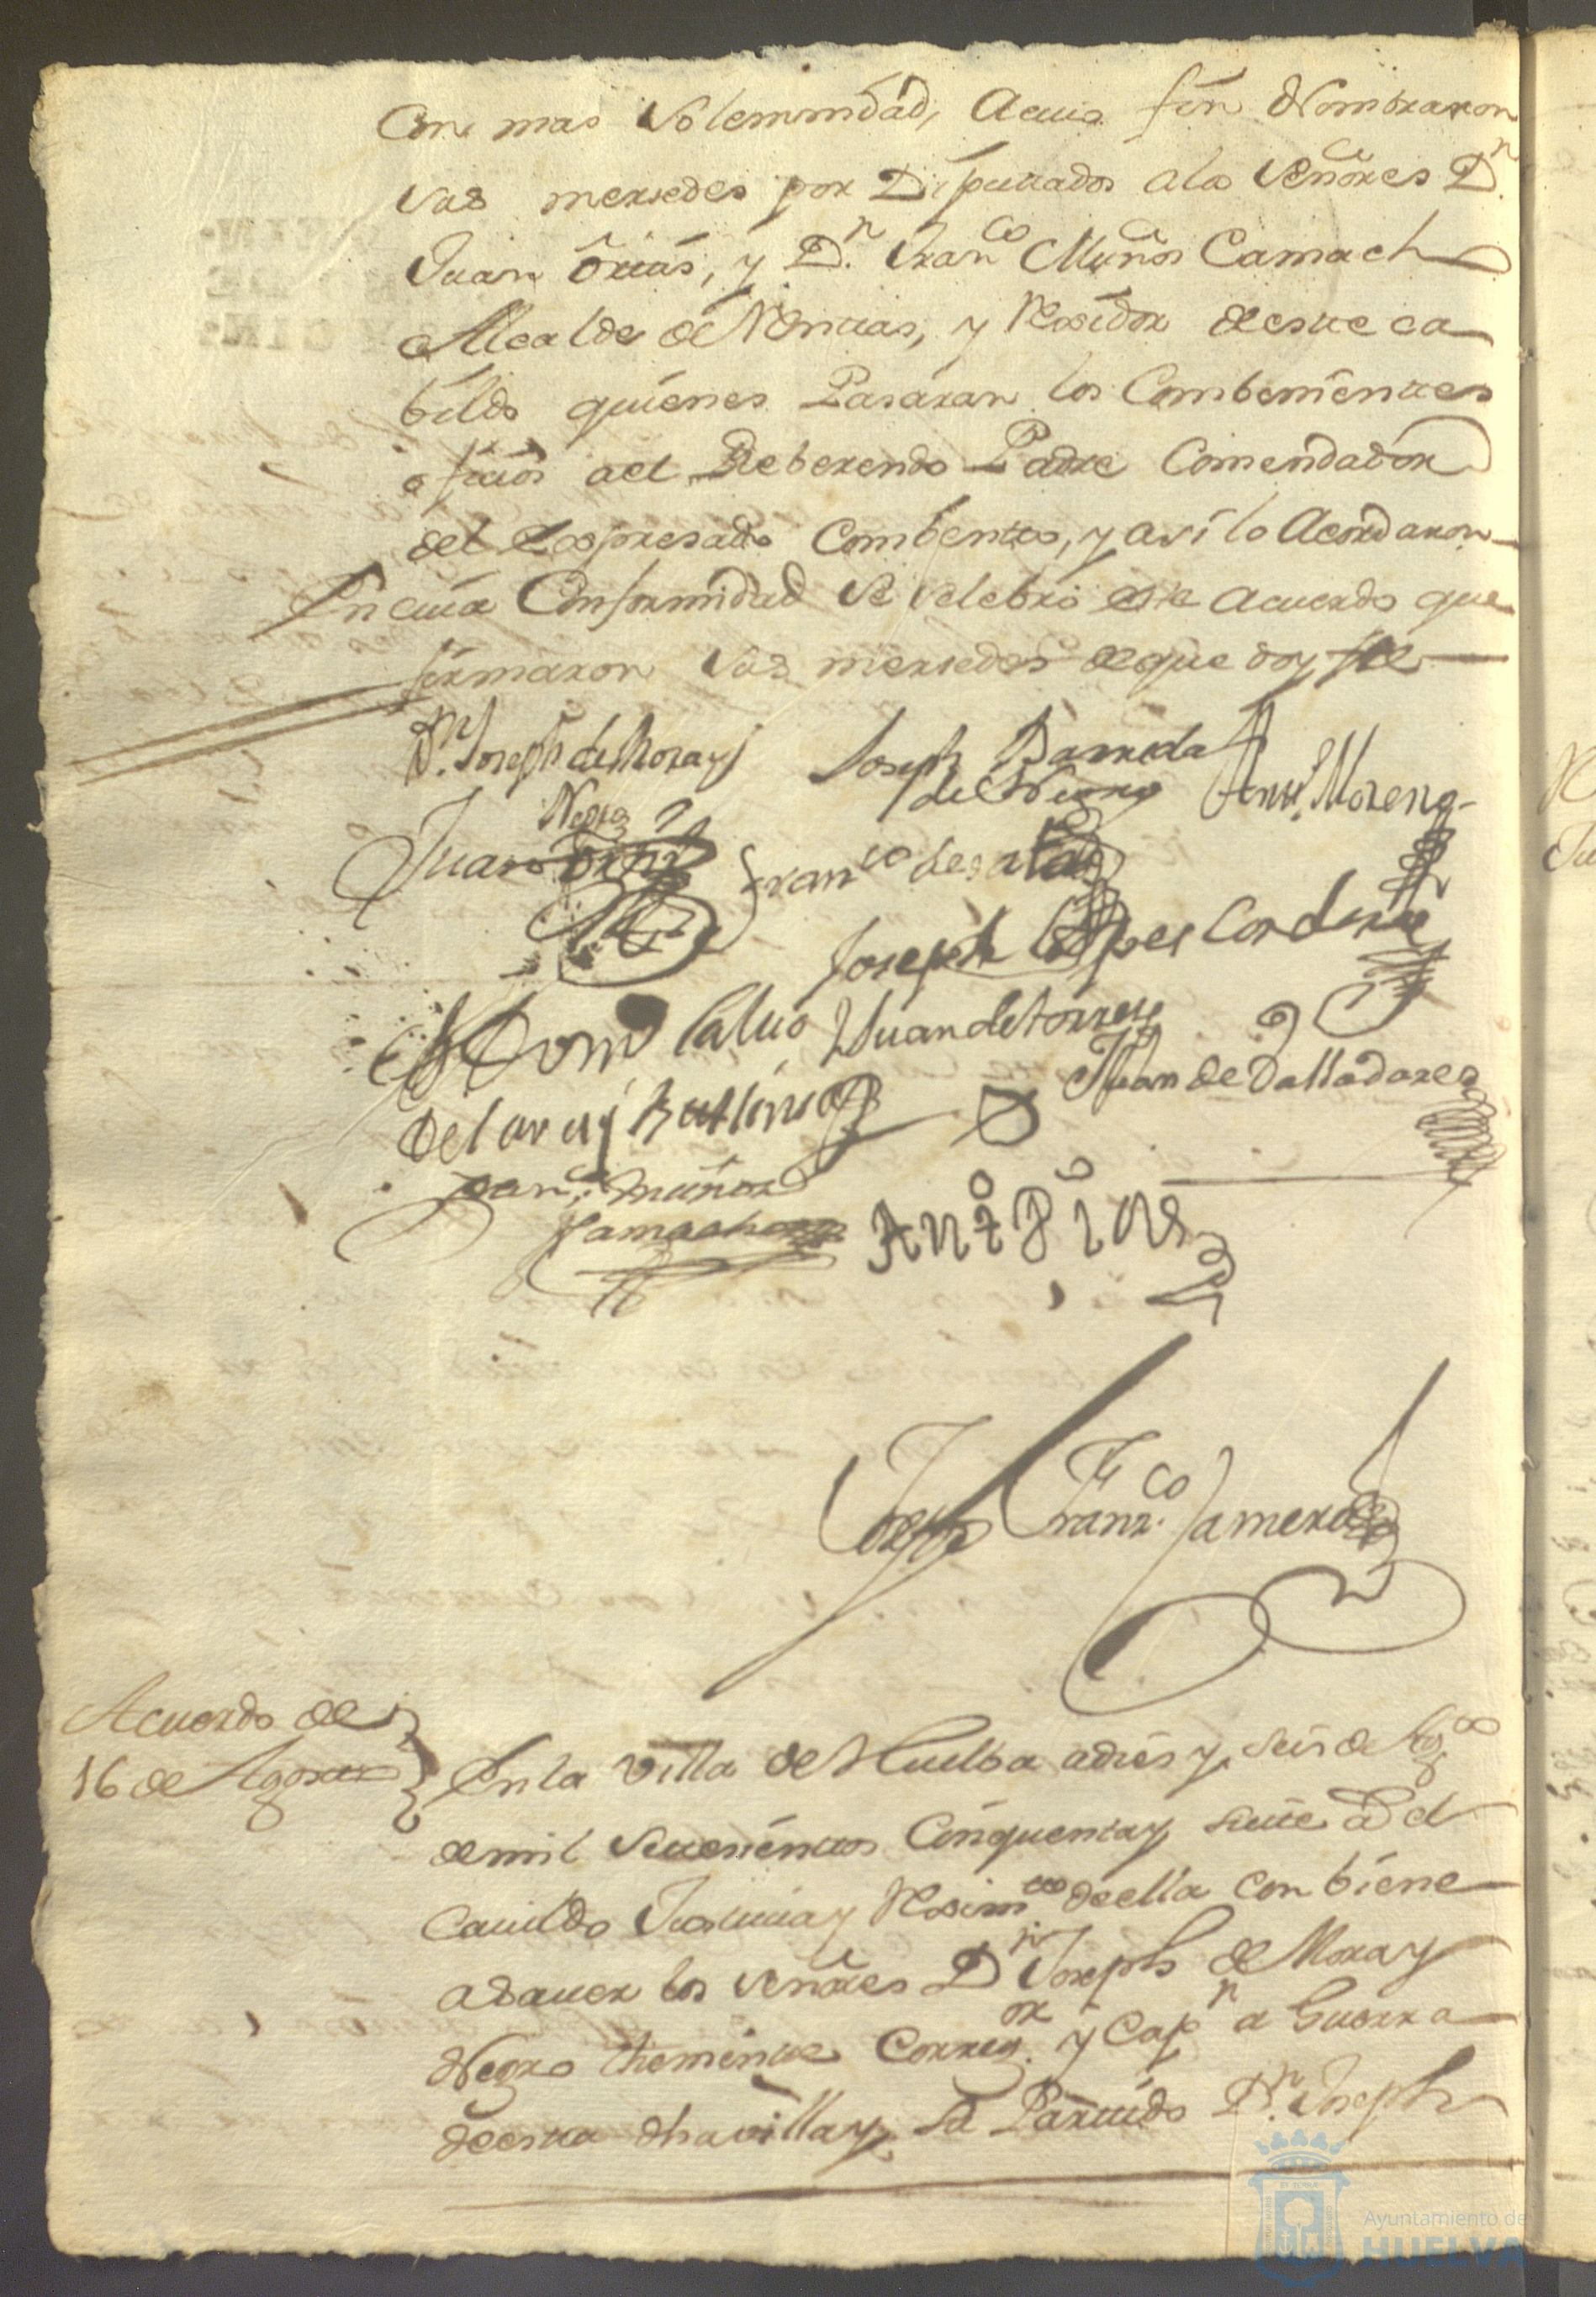 Con mas Solemnidad, Acuio fin Nombraron
Sus mersedes por Diputados a los Señores Dn.
Juan Ortis, y Dn. Franco Muños Camacho
Alcalde de Noncias, y Rexidor deeste ca
bildo quienes Pasaran los Combenientes
ofisios ael Reberendo Padre Comendador
del Expresado Combento, y asi lo Acordaron
En cuia Conformidad Se Selebro este acuerdo que
firmaron Sus mersedes deque doy fee
Dn. Joseph de Mora y
Negro
Joseph Barreda
Antt. Moreno
Juan Ortiz
Franco de
Joseph Lopes Cordero
Calvo
Juan de torres
Juan de Valladares
Fran. muños
Camacho
Anto Pino
Joseph Franco. Jamera
Acuerdo de
16 de Agosto
En la Villa de Huelba adies y Seis de Agto
demil Setesientos Cinquenta y Siete a
Cavildo Justicia y Reximto deella combiene
asauer los Señores Dn Joseph de Mora y
Negro theniente Corregor. y Capn a Guerra
deesta dha villa y Su Partido Dn. Joseph
Ayuntamiento de
HUELVA